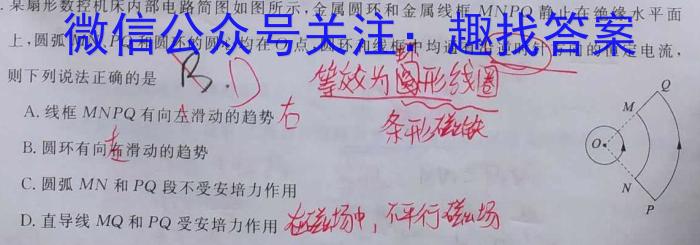 某扇形数控机床内部电路简图如图所示,金属圆环和金属线框MNPQ静止在绝缘水平面
上,圆弧 和圆环的圆心均在O点,圆环和线框中均通有 恒定电流,
微信公众号关注:趣找答案
则下列说法正确的是
B.D
等效为 形线圈
条形磁铁
A.线框MNPQ有向左滑动的趋势 右
B.圆环有向 滑动的趋势
左
C.圆弧MN和PQ段不受安培力作用
D.直导线MQ和PQ受安培力作用 在磁场中,不平行磁场
Q
M
O
N
P